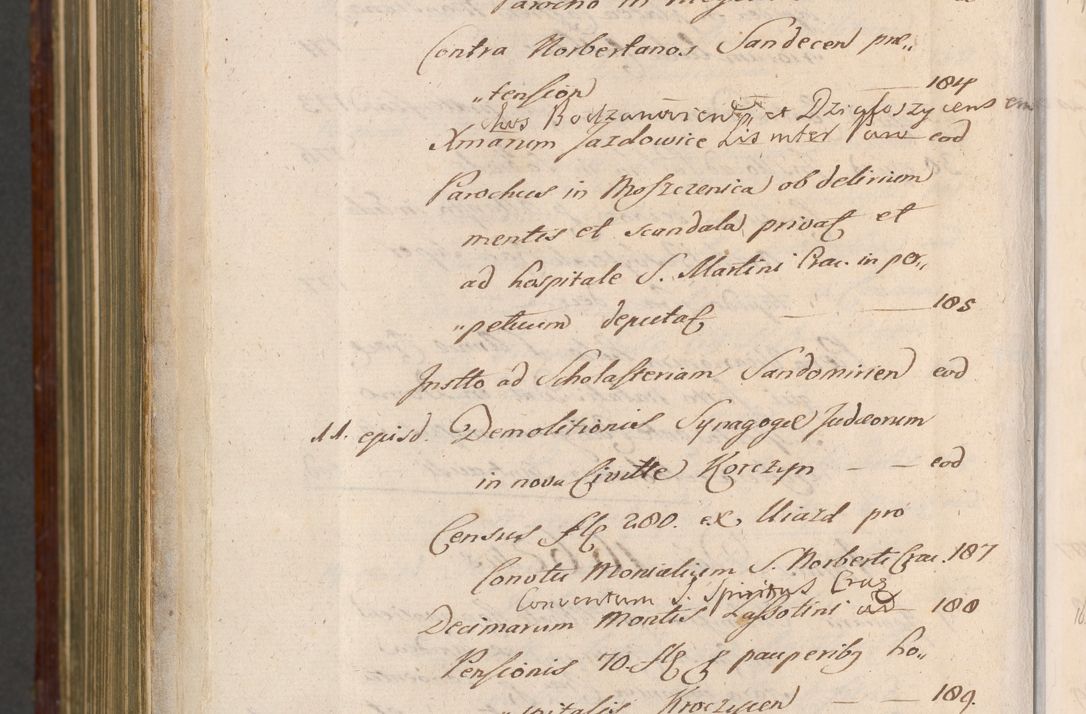 Parocho in
Contra Norbertanos Sandecen præ„
„tension — 184
chos Bodzanovien et Dzialoszycens
Xmarum Jazdowice Lis inter Par eod
Parochus in Moszczenica ob delirium
mentis et scandala privat et
ad hospitale S. Martini Crac. in per„
„petuum deputat — — 185
Instto ad Scholasteriam Sandomirien eod
11. episd. Demolitionis Synagogæ Judæorum
in nova Civitte Korczyn — — eod
Census fl 280. ex Uiazd pro
Conotu Monialium S. Norberti Crac. 187
Conventum S. Spiritus Crac
Decimarum Montis Lassotini ad — 188
Pensionis 70. fl p pauperibq ho„
„spitalis Kroczycen — — 189.